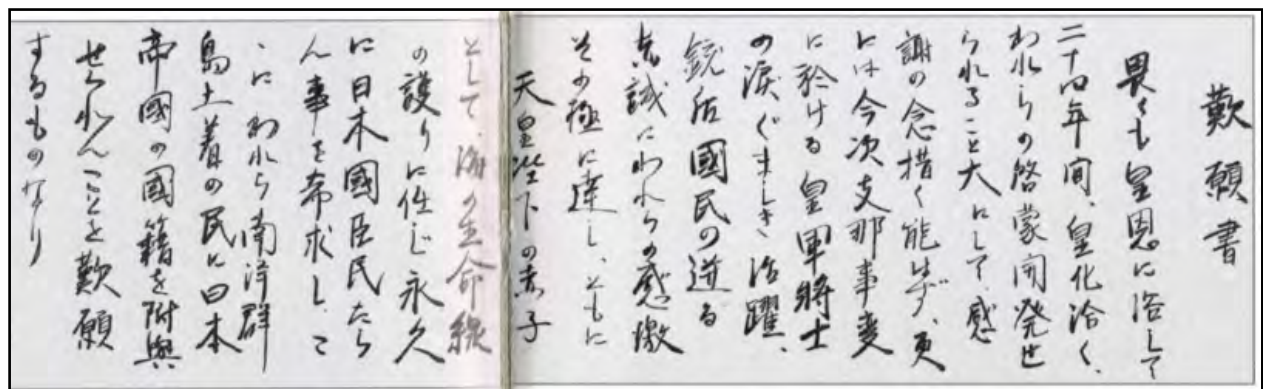 歎願書
畏くも皇恩に浴して
二十四年間、皇化洽く、
われらの啓蒙開発せ
られること大にして、感
謝の念措く能はず、更
には今次支那事変
に於ける皇軍将士
の涙ぐましき活躍、
銃后國民の迸る
赤誠にわれらの感激
その極に達し、ともに
天皇陛下の赤子
として、海の生命線
の護りに任じ永久
に日本國臣民たら
ん事を希求し、こ
ゝにわれら南洋群
島土着の民に日本
帝國の國籍を附與
せられんことを歎願
するものなり